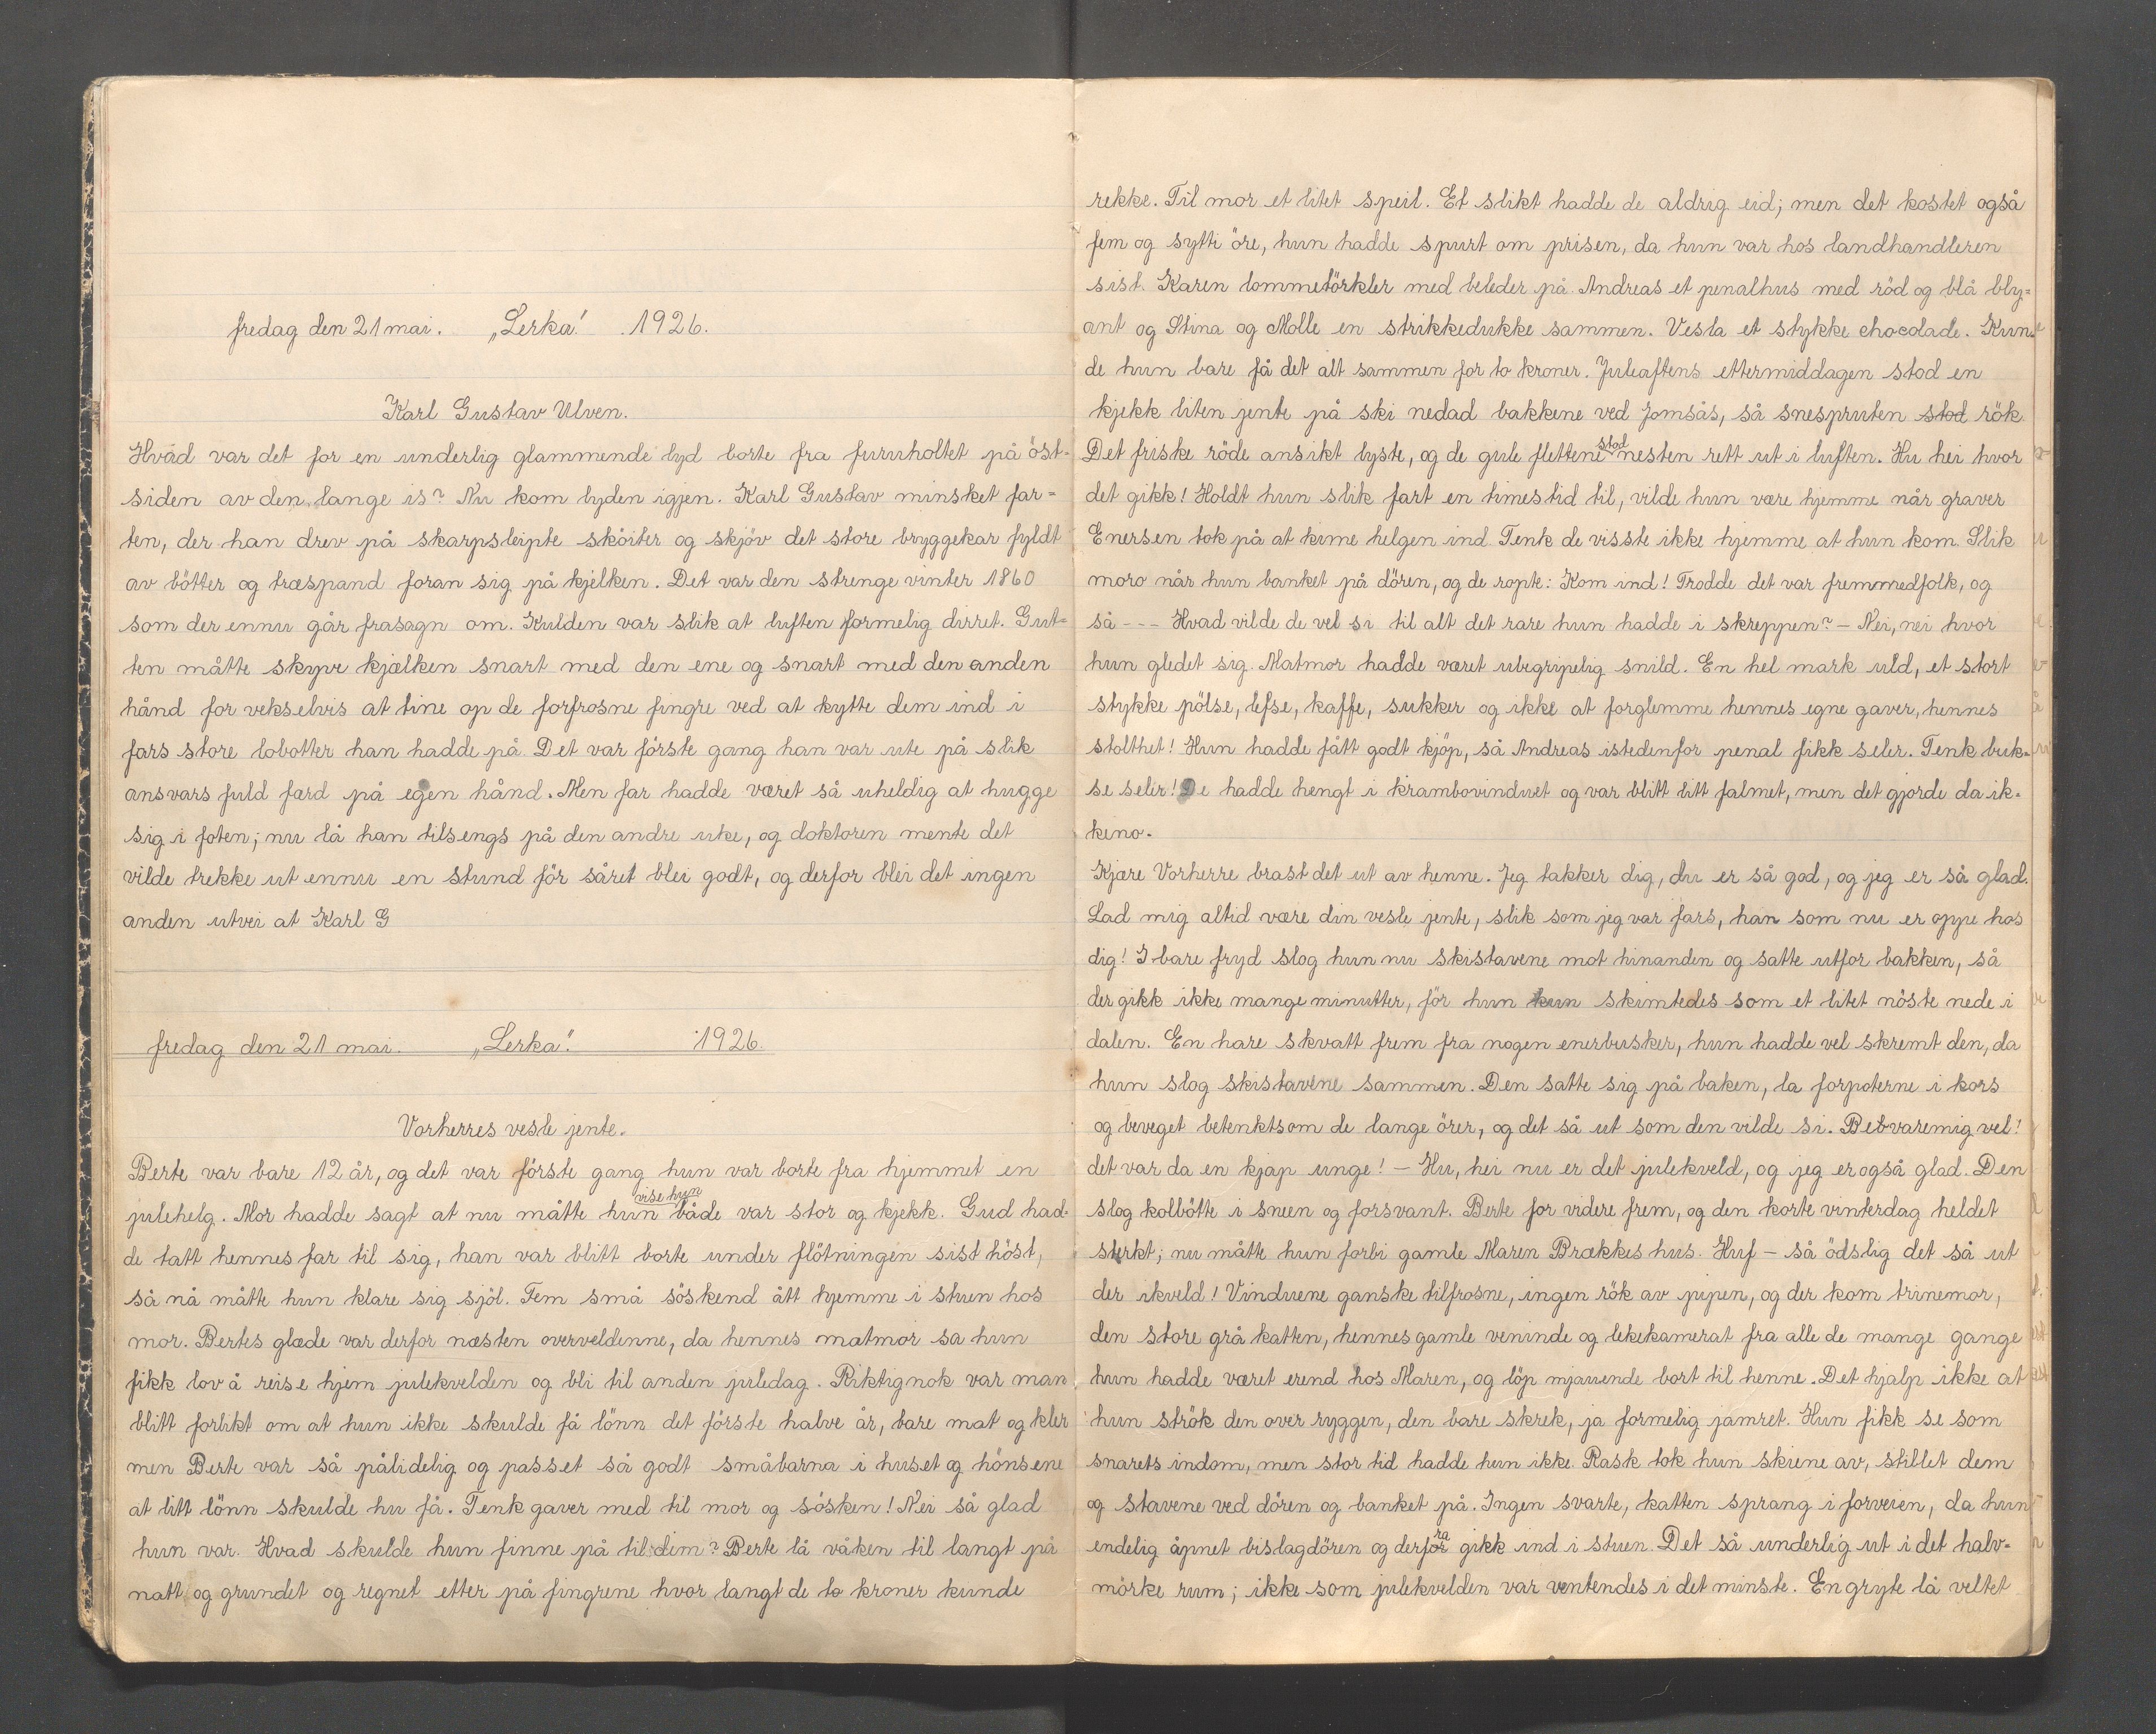 fredag den 21 mai. „Lerka". 1926.
Karl Gustav Ulven.
Hvad var det for en underlig glammende lyd borte fra furuholtet på öst-
siden av den lange is? Nu kom lyden igjen. Karl Gustav minsket far=
ten, der han drev på skarpsleipte sköiter og skjöv det store bryggekar fyldt
av bötter og træspand foran sig på kjelken. Det var den strenge vinter 1860
som der ennu går frasagn om. Kulden var slik at luften formelig dirret. Gut=
ten måtte skyve kjælken snart med den ene og snart med den anden
hånd for vekselvis at tine op de forfrosne fingre ved at kytte dem ind i
fars store lobotter han hadde på. Det var förste gang han var ute på slik
ansvars fuld færd på egen hånd. Men far hadde været så uheldig at hugge
sig i foten; nu lå han tilsengs på den andre uke, og doktoren mente det
vilde trekke ut ennu en stund för såret blei godt, og derfor blei det ingen
anden utvei at Karl G
fredag den 21 mai. „Lerka". 1926.
Vorherres vesle jente.
Berte var bare 12 år, og det var förste gang hun var borte fra hjemmet en
vise hun
julehelg. Mor hadde sagt at nu måtte hun både var stor og kjekk. Gud had-
de tatt hennes far til sig, han var blitt borte under flötningen sist höst,
så nå måtte hun klare sig sjöl. Fem små söskend ått hjemme i stuen hos
mor. Bertes glæde var derfor næsten overveldenne, da hennes matmor sa hun
fikk lov å reise hjem julekvelden og bli til anden juledag. Riktignok var man
blitt forlikt om at hun ikke skulde få lönn det förste halve år, bare mat og kler
men Berte var så pålidelig og passet så godt småbarna i huset og hönsene
at litt lönn skulde hu få. Tenk gaver med til mor og sösken! Nei så glad
hun var. Hvad skulde hun finne på til dem? Berte lå våken til langt på
natt og grundet og regnet etter på fingrene hvor langt de to kroner kunde
rekke. Til mor et litet speil. Et slikt hadde de aldrig eid; men det kostet også
fem og sytti öre, hun hadde spurt om prisen, da hun var hos landhandleren
sist. Karen lommetörkler med beleder på. Andreas et penalhus med röd og blå bly=
ant og Stina og Molle en strikkedukke sammen. Vesla et stykke chocolade. Kun-
de hun bare få det alt sammen for to kroner. Juleaftens ettermiddagen stod en
kjekk liten jente på ski nedad bakkene ved Jomsås, så snespruten stod rök.
stod
Det friske röde ansikt lyste, og de gule flettene nesten rett ut i luften. Hu hei hvor
det gikk! Holdt hun slik fart en timestid til, vilde hun være hjemme når graver
Enersen tok på at kime helgen ind. Tenk de visste ikke hjemme at hun kom. Slik
moro når hun banket på dören, og de ropte: Kom ind! Trodde det var fremmedfolk, og
så --- Hvad vilde de vel si til alt det rare hun hadde i skreppen? - Nei, nei hvor
hun gledet sig. Matmor hadde været ubegripelig snild. En hel mark uld, et stort
stykke pölse, lefse, kaffe, sukker og ikke at forglemme hennes egne gaver, hennes
stolthet! Hun hadde fått godt kjöp, så Andreas istedenfor penal fikk seler. Tenk buk-
se seler! De hadde hengt i krambovinduet og var blitt litt falmet, men det gjorde da ik-
keno.
Kjære Vorherre brast det ut av henne. Jeg takker dig, du er så god, og jeg er så glad.
Lad mig altid være din vesle jente, slik som jeg var fars, han som nu er oppe hos
dig! I bare fryd slog hun nu skistavene mot hinanden og satte utfor bakken, så
der gikk ikke mange minutter, för hun kun skimtedes som et litet nöste nede i
dalen. En hare skvatt frem fra nogen enerbusker, hun hadde vel skremt den, da
hun slog skistavene sammen. Den satte sig på baken, la forpoterne i kors
og beveget betenktsom de lange örer, og det så ut som den vilde si. Bevaremig vel!
det var da en kjap unge! - Hu, hei nu er det julekveld, og jeg er også glad. Den
slog kolbötte i sneen og forsvant. Berte for videre frem, og den korte vinterdag heldet
sterkt; nu måtte hun forbi gamle Maren Brækkes hus. Huf - så ödslig det så ut
der ikveld! Vinduene ganske tilfrosne, ingen rök av pipen, og der kom trinemor,
den store grå katten, hennes gamle veninde og lekekamerat fra alle de mange gange
hun hadde været erend hos Maren, og löp mjauende bort til henne. Det hjalp ikke at
hun strök den over ryggen, den bare skrek, ja formelig jamret. Hun fikk se som
snarets indom, men stor tid hadde hun ikke. Rask tok hun skiene av, stillet dem
og stavene ved dören og banket på. Ingen svarte, katten sprang i forveien, da hun
ra
endelig åpnet bislagdören og derfor gikk ind i stuen. Det så underlig ut i det halv=
mörke rum; ikke som julekvelden var ventendes i det minste. En gryte lå veltet